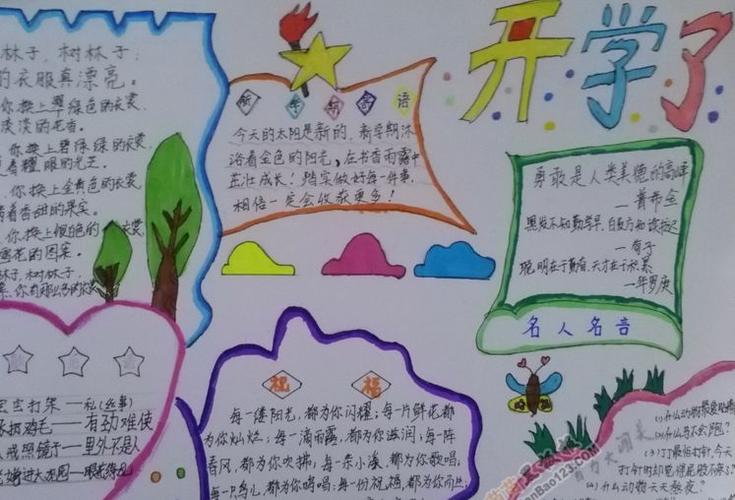 开学了
林子，树林子；
的衣服真漂亮。
你换上翠绿色的衣裳，
淡淡的花香。
你换上碧绿绿的衣裳
着耀眼的光芒。
你换上金黄色的衣裳
着香甜的果实。
你换上银色的衣裳
雪花的图案。
林子，树林子，
新年新警语
今天的太阳是新的，新学期沐
浴着金色的阳光，在书香雨露中
茁壮成长！踏实做好每一件事，
相信一定会收获更多！
勇敢是人类美德的高峰
—普希金
黑发不知勤学早，白首方知读书迟
—荀子
聪明在于勤奋，天才在于积累
—华罗庚
名人名言
打架——私(丝事)
鸡毛——有劲难使
戒照镜子——里外不是人
进大花园——眼花缭乱
祝福
每一缕阳光，都为你闪耀；每一片鲜花都
为你灿烂；每一滴雨露，都为你滋润；每一阵
春风，都为你吹拂，每一条小溪，都为你歌唱；
每一只鸟儿，都为你鸣唱；每一份祝福，都为
(1)什么动物最爱贴
(2)什么马不会跑？
(3)丁丁最怕打针，今天
打针时却觉得屁股不疼？
(4)什么动物天天熬夜？
BanBao123.com